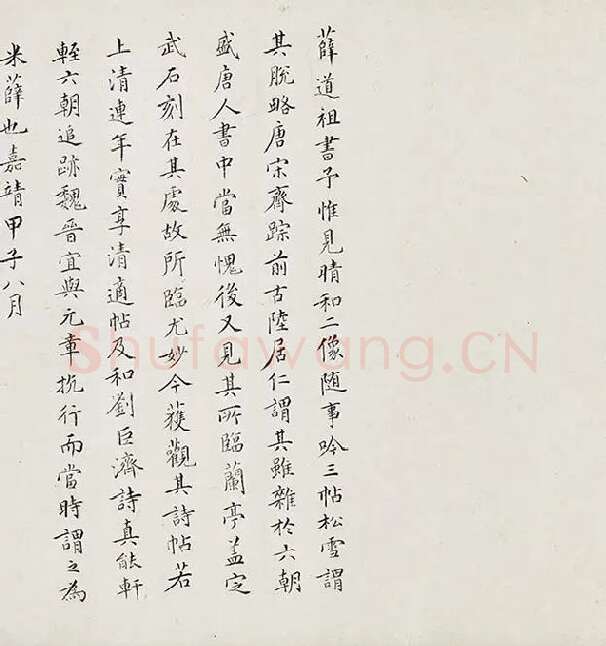 薛道祖書予惟見晴和二像随事吟三帖松雪謂
其脫略唐宋齊踪前古陸居仁謂其雖雜於六朝
盛唐人書中當無愧後又見其所臨蘭亭盖定
武石刻在其處故所臨尤妙今獲觀其詩帖若
上清連年實享清適帖及和劉巨濟詩真能軒
輊六朝追跡魏晉宜與元章抗行而當時謂之為
米薛也嘉靖甲子八月
Shufawang.CN